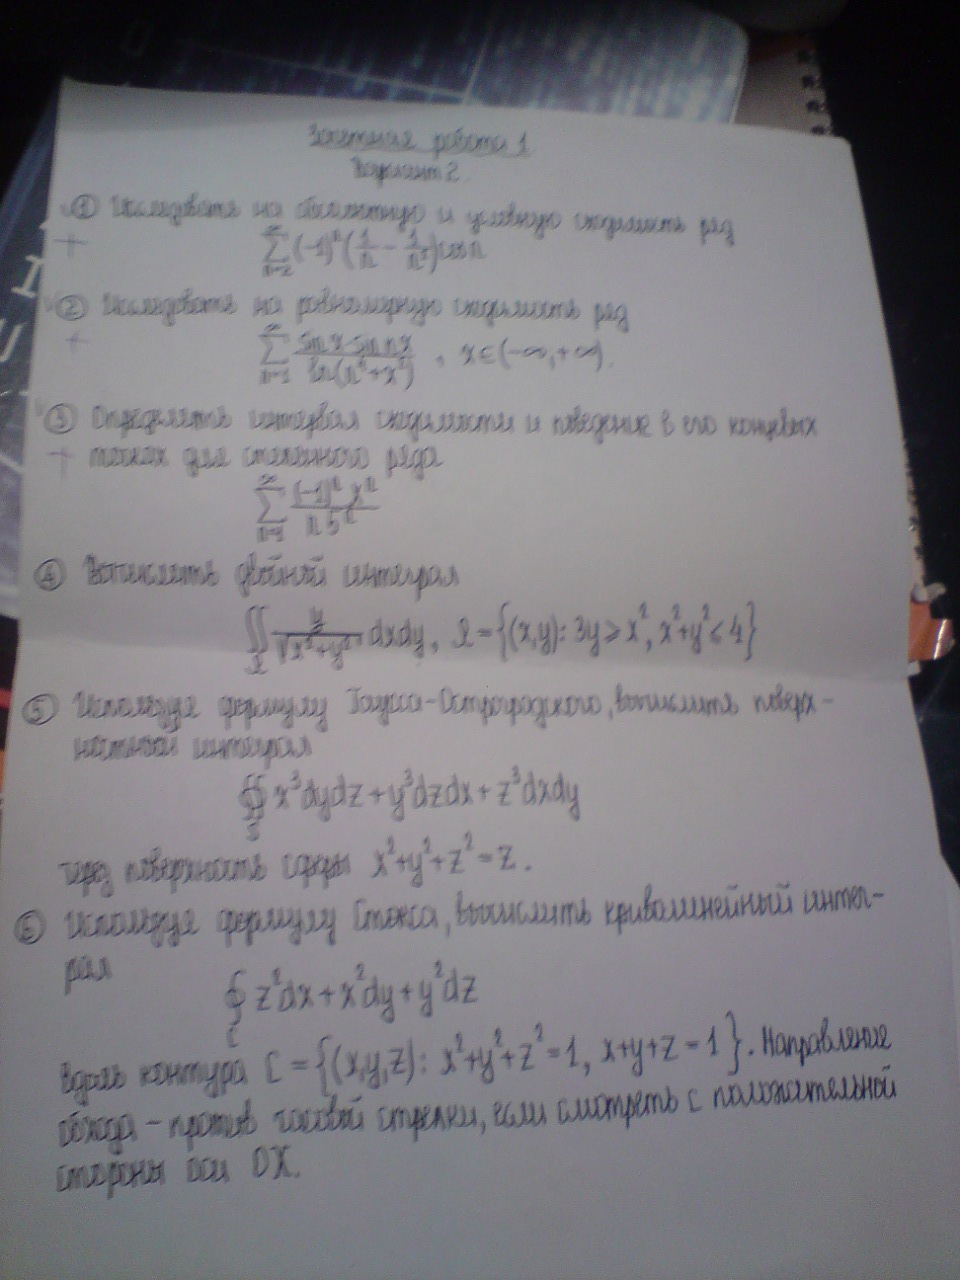 Зачетная работа 1
Вариант 2.
① Исследовать на абсолютную и условную сходимость ряд
+ ∑_{n=2}^{∞} (-1)^n (1/n - 1/n^2) cos n
② Исследовать на равномерную сходимость ряд
+ ∑_{n=1}^{∞} sin x · sin nx / ln(n^6 + x^2) , x ∈ (-∞, +∞).
③ Определить интервал сходимости и поведение в его концевых
+ точках для степенного ряда
∑_{n=1}^{∞} (-1)^n x^n / n 5^n
④ Вычислить двойной интеграл
∬ y / √(x^2+y^2) dxdy, = {(x,y): 3y ≥ x^2, x^2+y^2 ≤ 4}
⑤ Используя формулу Гаусса-Остроградского, вычислить поверх-
ностный интеграл
∯_S x^3 dydz + y^3 dzdx + z^3 dxdy
через поверхность сферы x^2+y^2+z^2 = z.
⑥ Используя формулу Стокса, вычислить криволинейный интег-
рал
∮_C z^2 dx + x^2 dy + y^2 dz
вдоль контура C = {(x,y,z): x^2+y^2+z^2 = 1, x+y+z = 1}. Направление
обхода – против часовой стрелки, если смотреть с положительной
стороны оси OX.